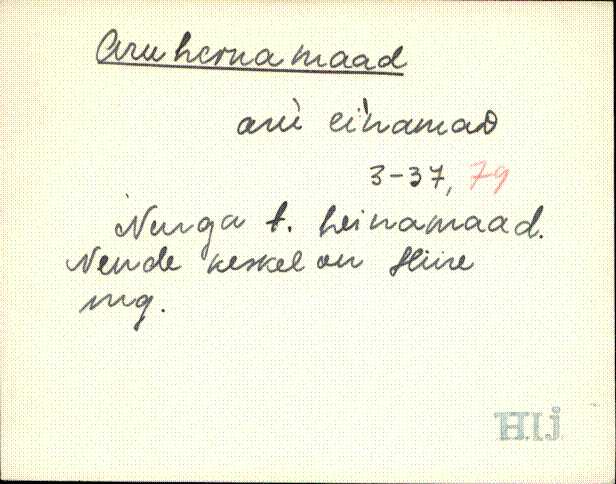 Aru heinamaad
aru èinamaD
3-37, 79
Nurga t. heinamaad.
Nende keskel on Hiire
mg.
HIj.